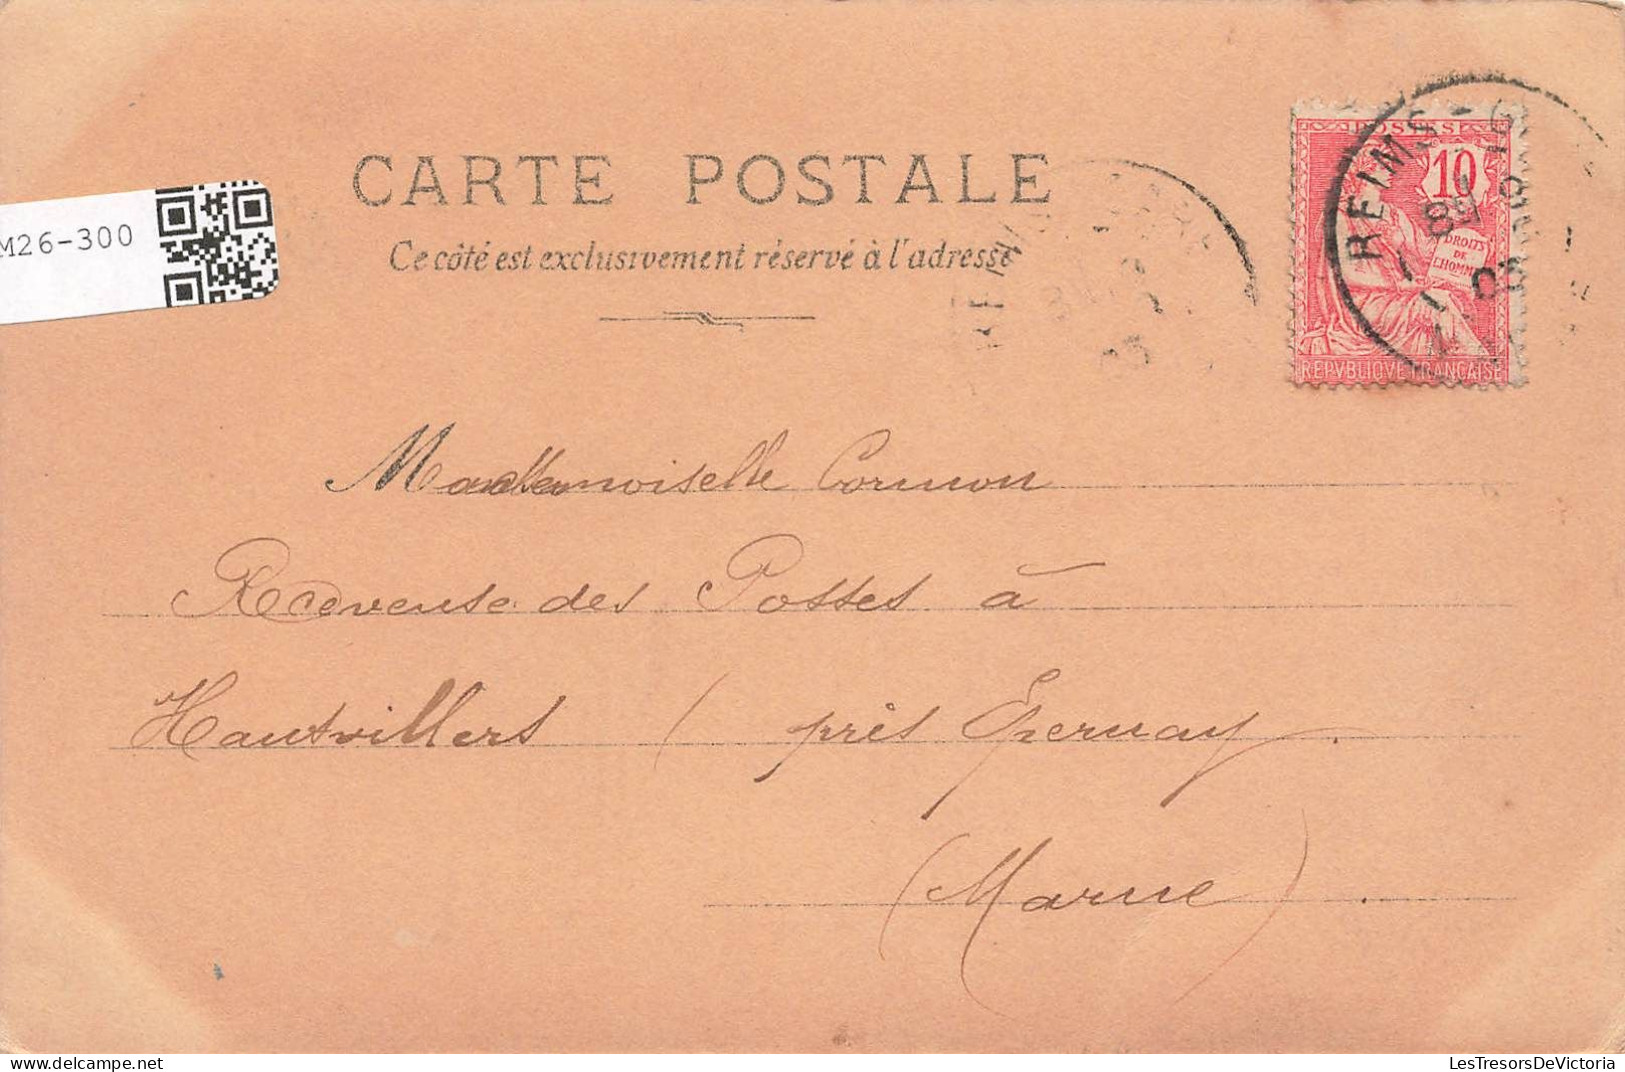 CARTE POSTALE
Ce côté est exclusivement réservé à l'adresse
M26-300
POSTES
10
DROITS
DE
L'HOMME
REPVBLIQVE FRANÇAISE
REIMS
03
Mademoiselle Cormon
Receveuse des Postes à
Hautvillers ( près Épernay.
(Marne)
LesTresorsDeVictoria